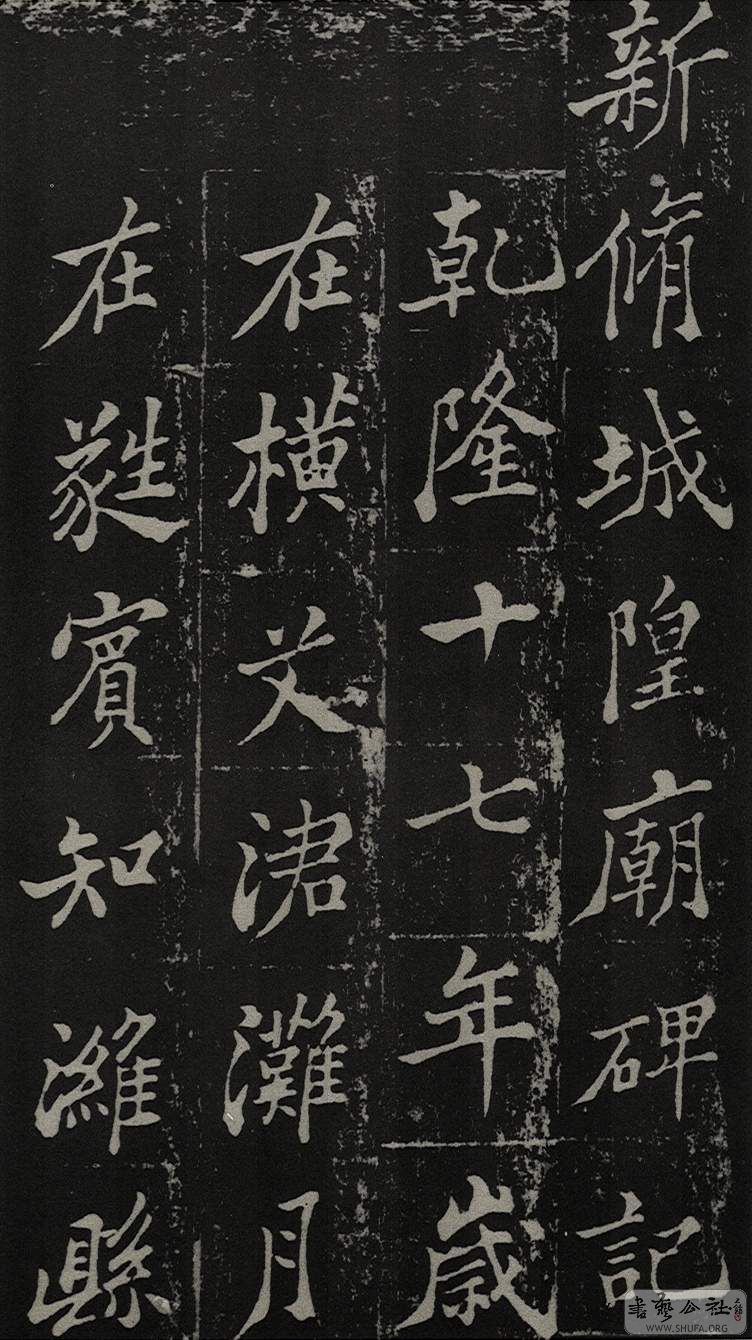 新脩城隍廟碑記
乾隆十七年歲
在橫艾涒灘月
在蕤賓知濰縣
書藝公社
WWW.SHUFA.ORG